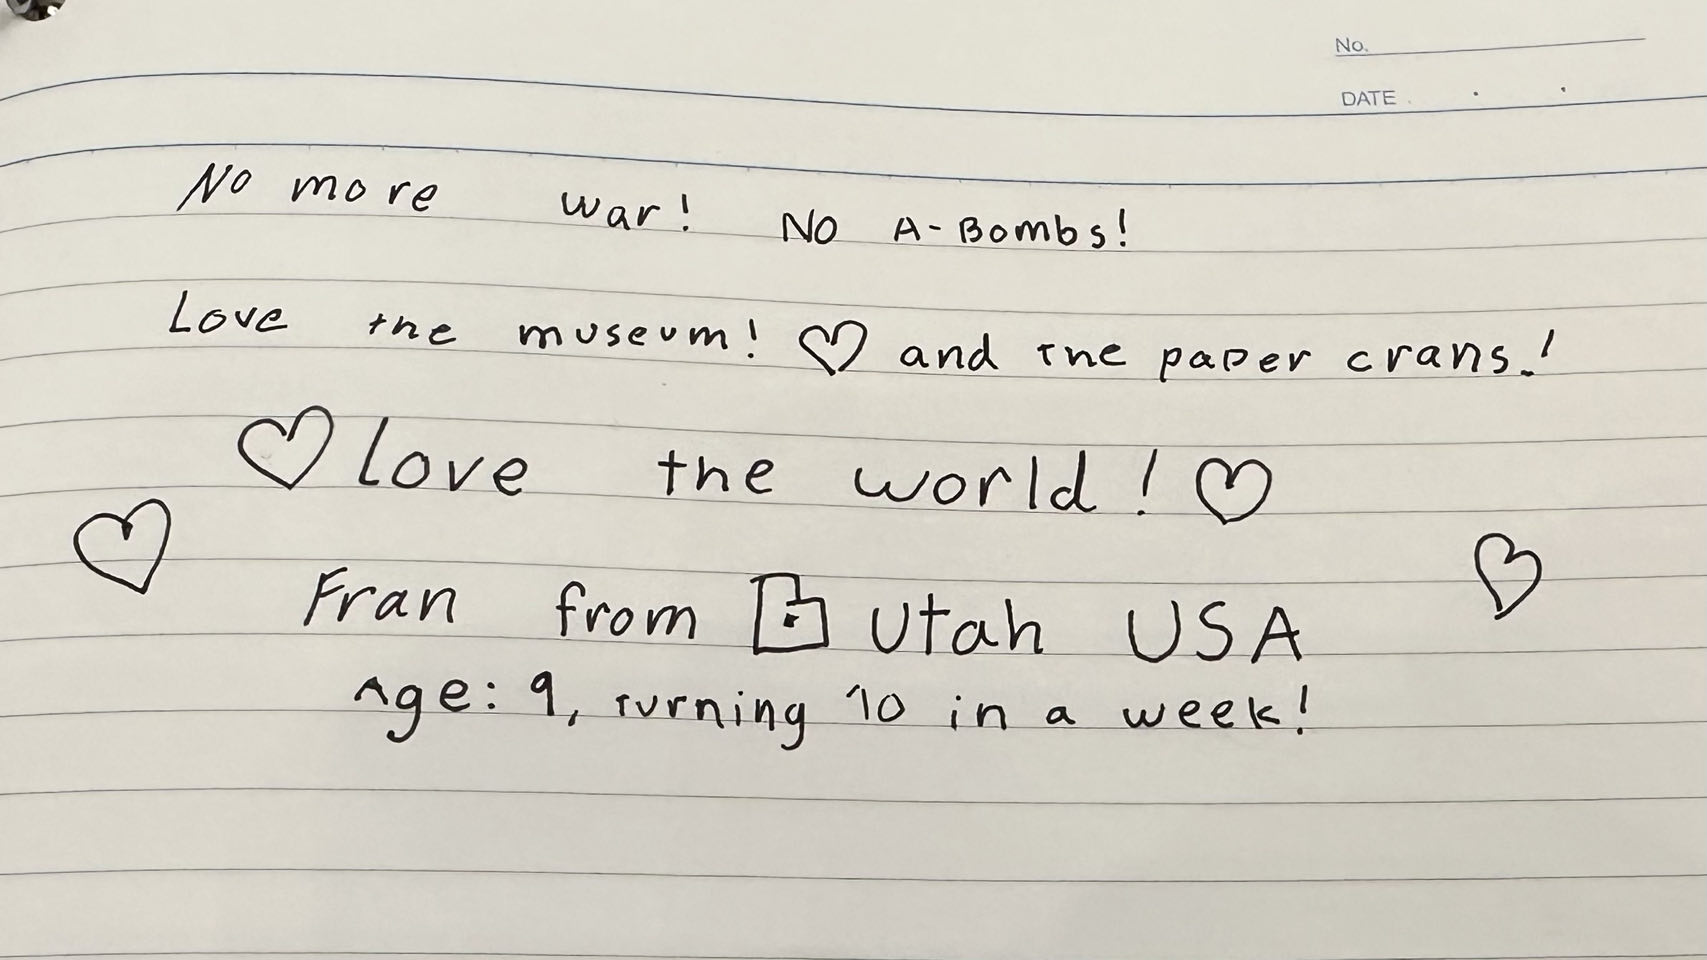 No.
DATE . .
No more war! No A-Bombs!
Love the museum! ♡ and the paper crans!
♡ Love the world! ♡
Fran from Utah USA
Age: 9, turning 10 in a week!